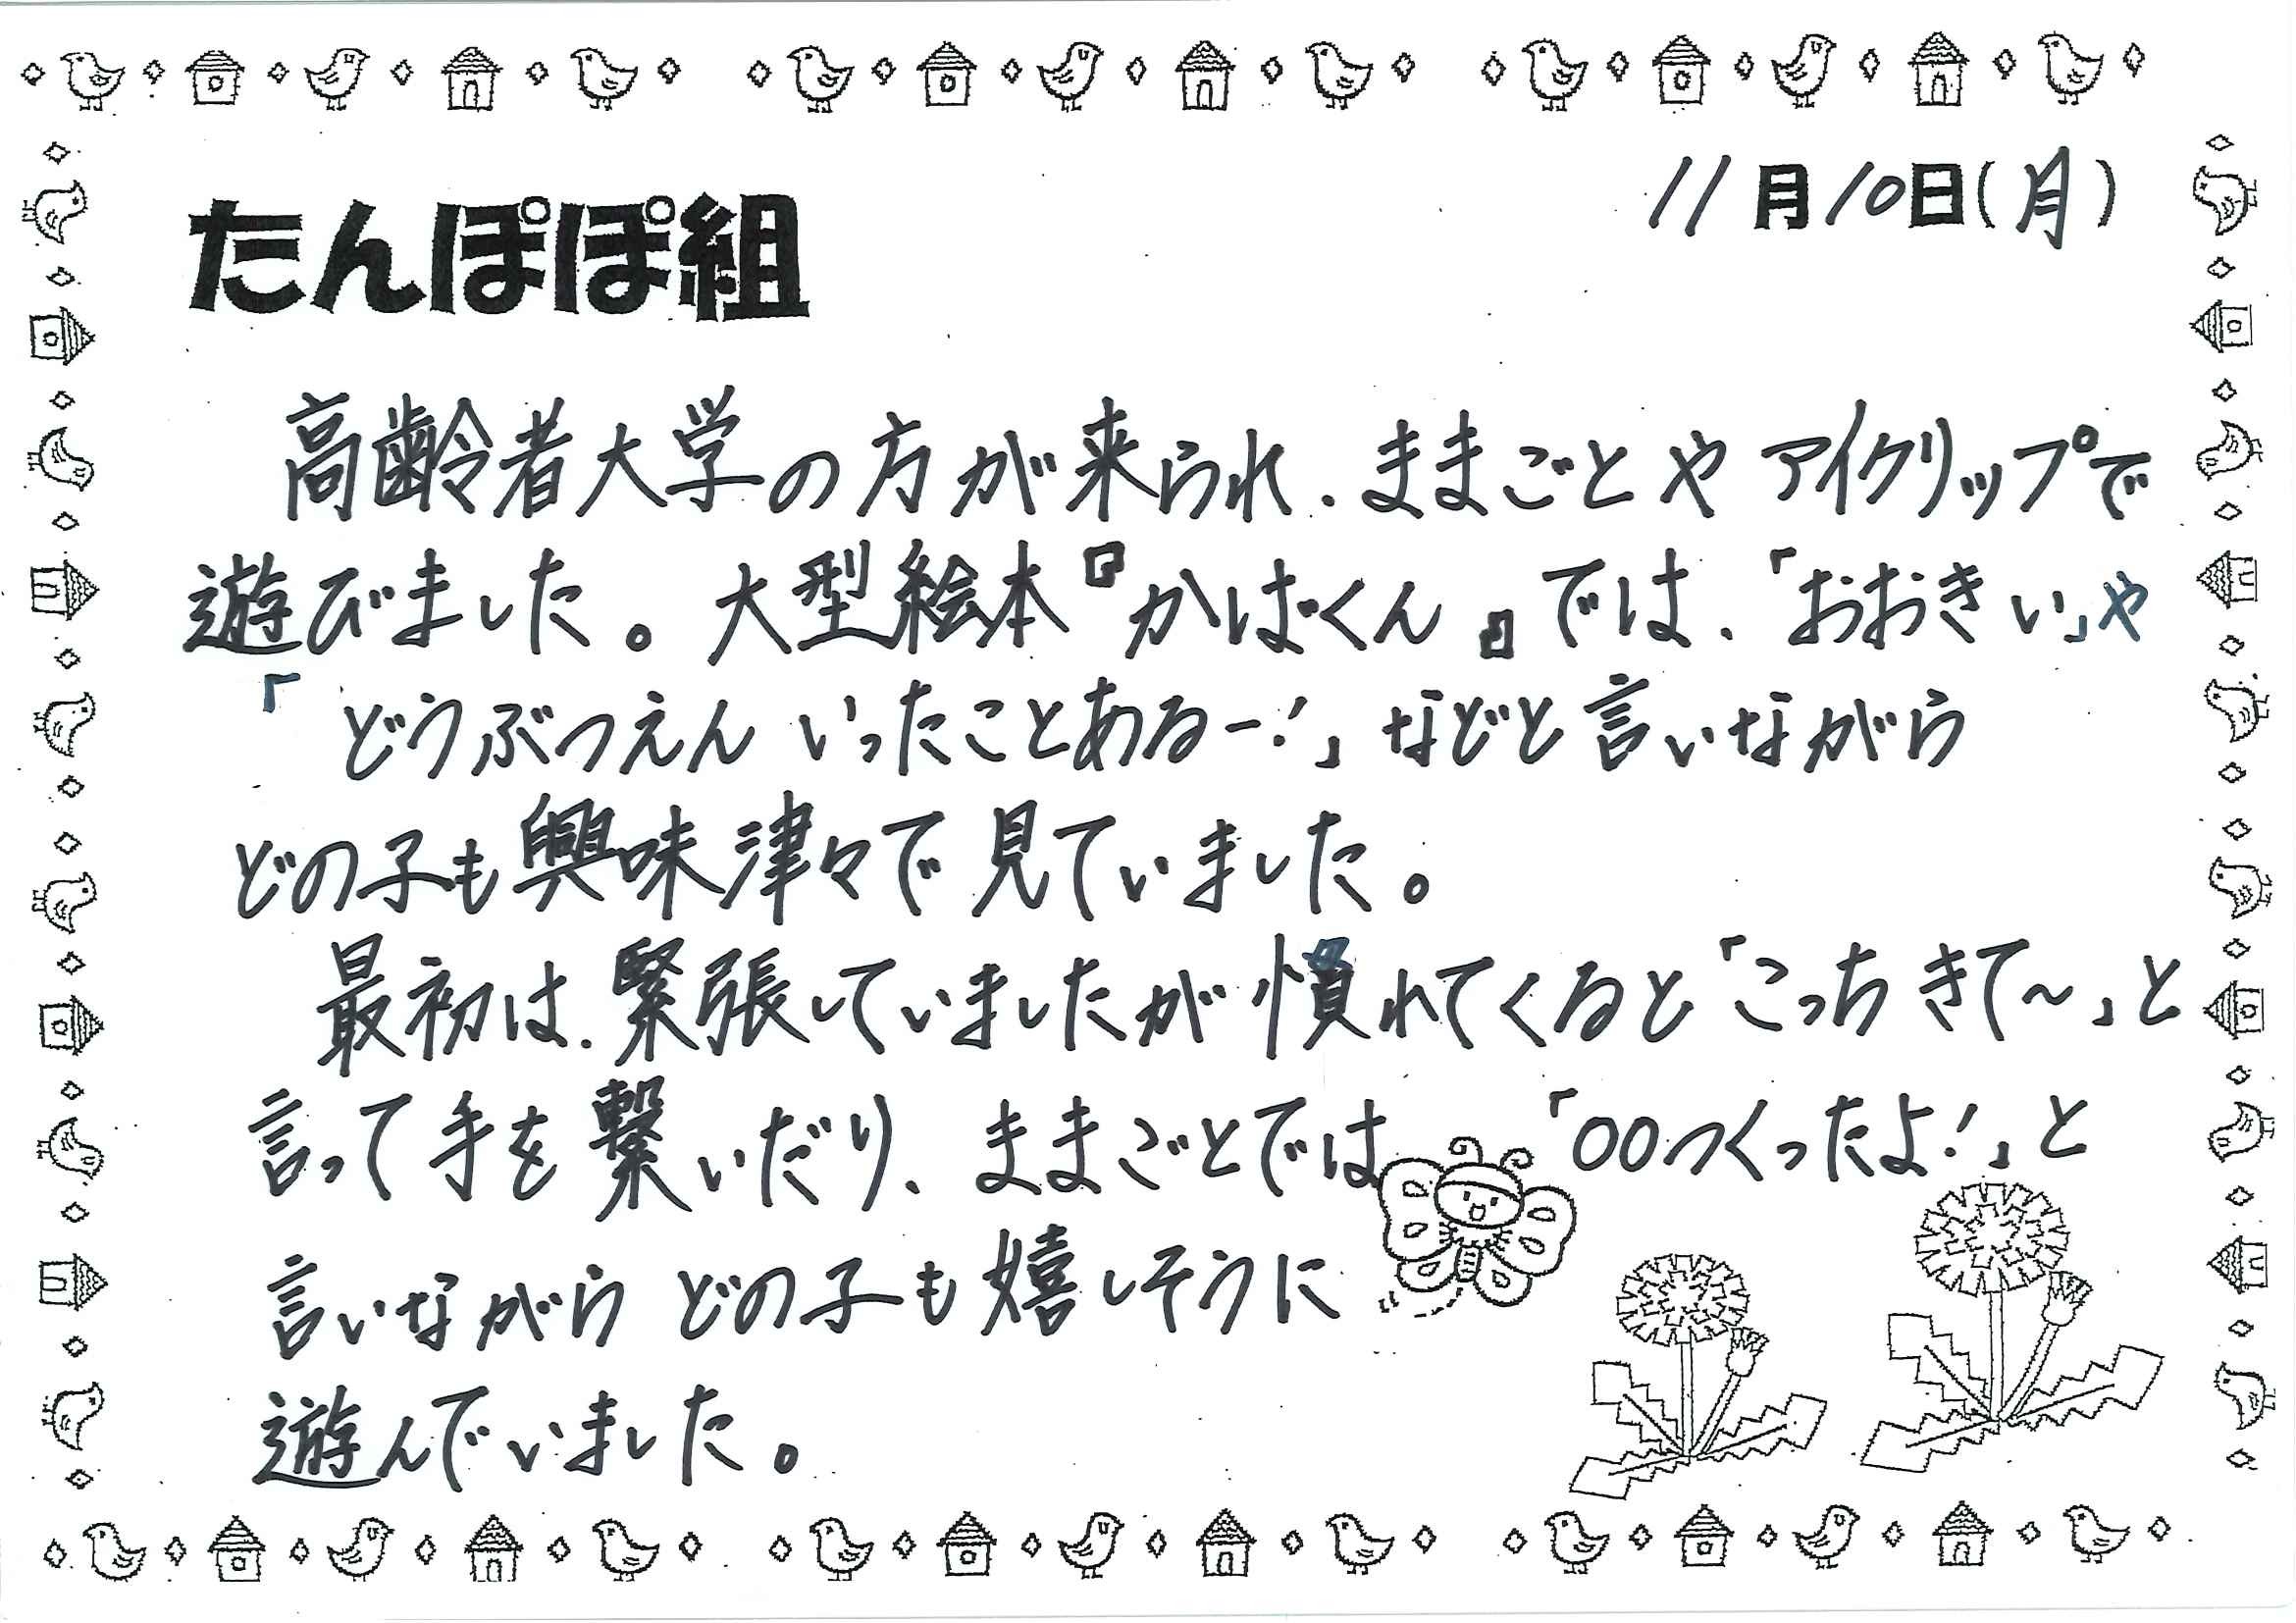 11月10日(月)
たんぽぽ組
高齢者大学の方が来られ、ままごとやアイクリップで
遊びました。大型絵本『かばくん』では、「おおきい」や
「どうぶつえんいったことあるー!」などと言いながら
どの子も興味津々で見ていました。
最初は、緊張していましたが慣れてくると「こっちきて〜」と
言って手を繋いだり、ままごとでは「○○つくったよ!」と
言いながらどの子も嬉しそうに
遊んでいました。